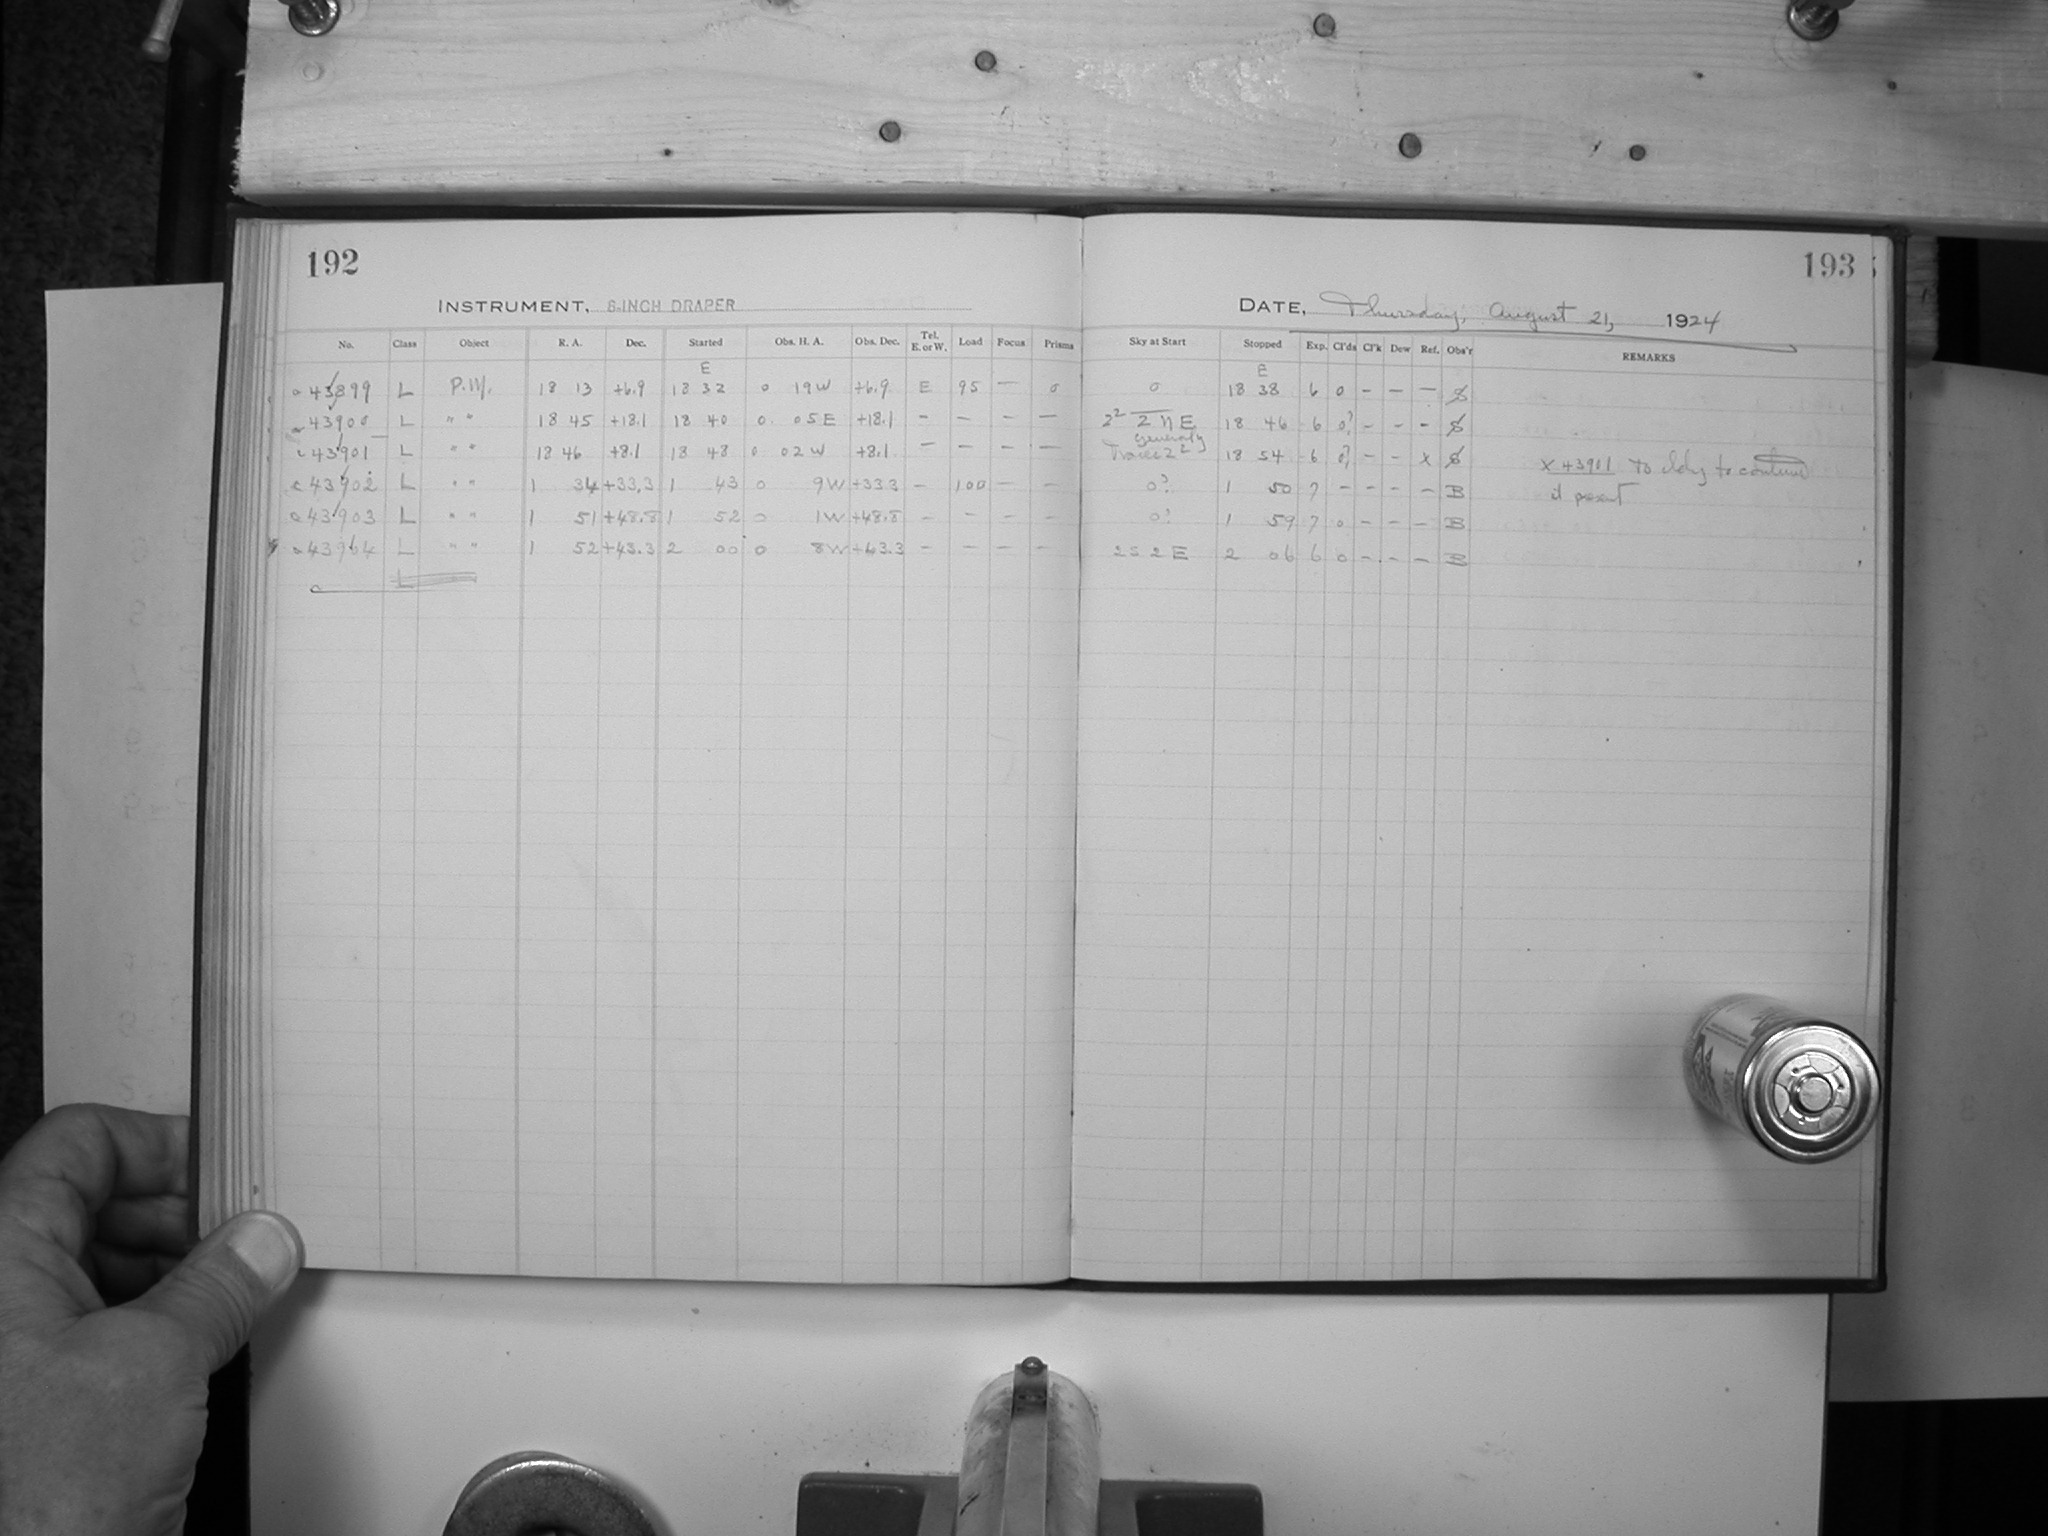 192
193
INSTRUMENT, 8-INCH DRAPER
DATE, Thursday, August 21, 1924
No. Class Object R. A. Dec. Started Obs. H. A. Obs. Dec. Tel. E. or W. Load Focus Prisms Sky at Start Stopped Exp. Cl'ds Cl'k Dew Ref. Obs'r REMARKS
E E
a 43899 L P.M. 18 13 +6.9 18 32 0 19 W +6.9 E 95 — 0 0 18 38 6 0 – – –
43900 L " " 18 45 +18.1 18 40 0 05 E +18.1 – – – – 2² 2 N E 18 46 6 0? – – –
generally
43901 L " " 18 46 +8.1 18 48 0 02 W +8.1 – – – – Traces 2² 18 54 6 0? – – x
x 43901 To cldy to continue
43902 L " " 1 34 +33.3 1 43 0 9 W +33.3 – 100 – – 0? 1 50 7 – – – – B
at present
a 43903 L " " 1 51 +48.8 1 52 0 1 W +48.8 – – – – 0? 1 59 7 0 – – – B
a 43904 L " " 1 52 +43.3 2 00 0 8 W +43.3 – – – – 2 S 2 E 2 06 6 0 – – – B
L